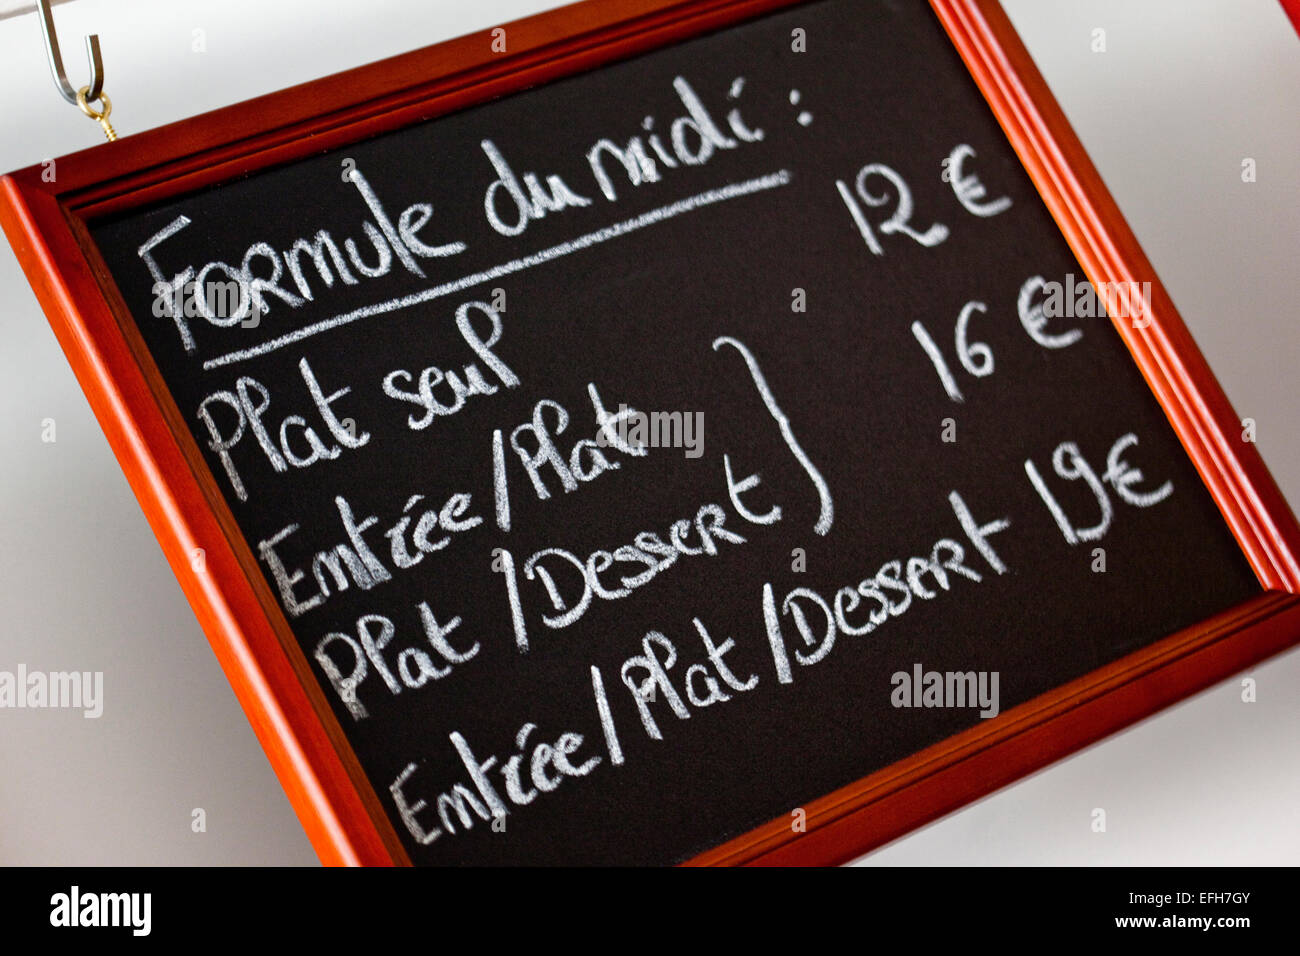 Formule du midi :
Plat seul 12 €
Entrée/Plat } 16 €
Plat/Dessert
Entrée/Plat/Dessert 19 €
alamy
alamy
Image ID: EFH7GY
www.alamy.com